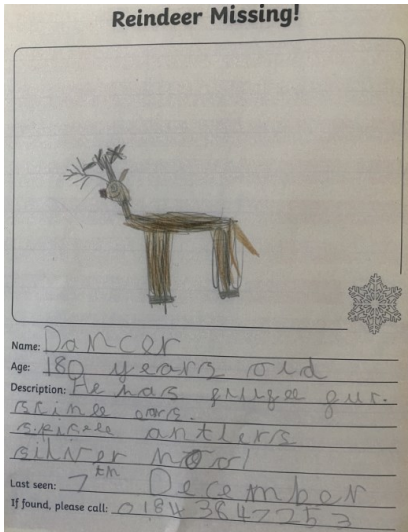 Reindeer Missing!
Name: Dancer
Age: 180 years old
Description: He has fufee fur.
scinee ears.
spicee antlers
silver hool
Last seen: 7th December
If found, please call: 0184 3847253